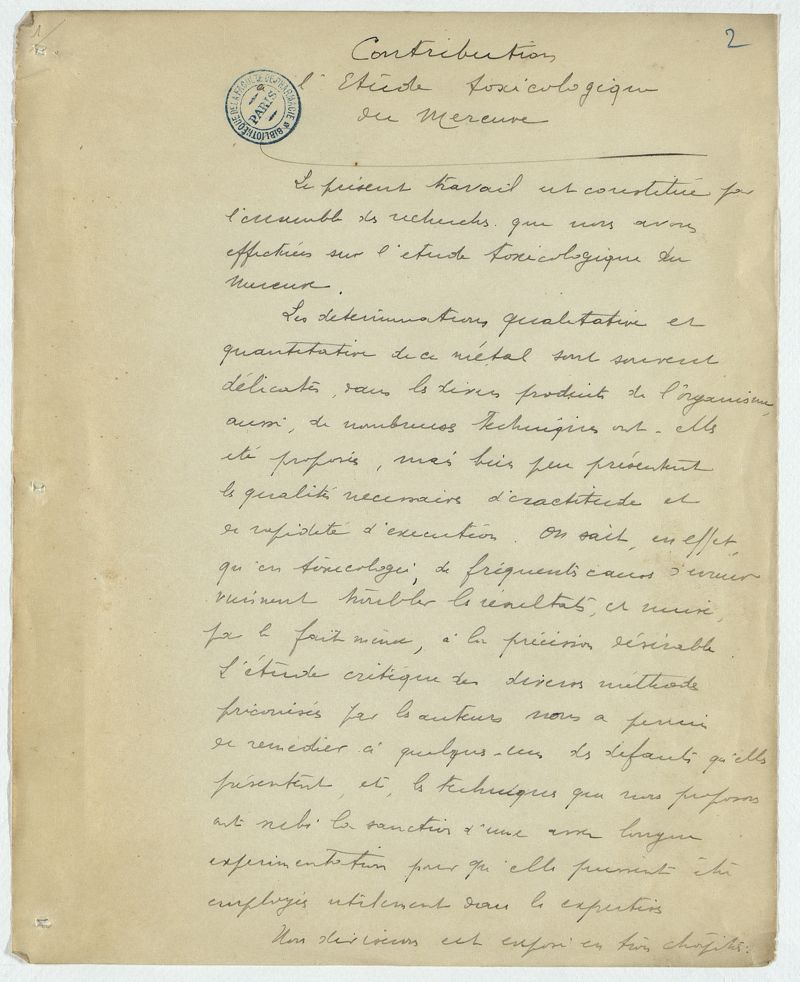 2
1
Contribution
à l'Etude toxicologique
du Mercure
BIBLIOTHÈQUE DE LA FACULTÉ DE PHARMACIE
PARIS
Le présent travail est constitué par
l'ensemble des recherches que nous avons
effectuées sur l'etude toxicologique du
Mercure.
Les determinations qualitative et
quantitative de ce métal sont souvent
délicates, dans les divers produits de l'organisme,
aussi, de nombreuses techniques ont-elles
été proposées, mais bien peu présentent
les qualités necessaires d'exactitude et
de rapidité d'execution. On sait, en effet,
qu'en toxicologie, de fréquentes causes d'erreur
viennent troubler les résultats, et nuire,
par le fait même, à la précision désirable.
L'étude critique des diverses méthodes
préconisées par les auteurs nous a permis
de remedier à quelques-uns des défauts qu'elles
présentent, et, les techniques que nous proposons
ont subi la sanction d'une assez longue
experimentation pour qu'elles puissent être
employées utilement dans les expertises
Nous diviserons cet exposé en trois chapitres: